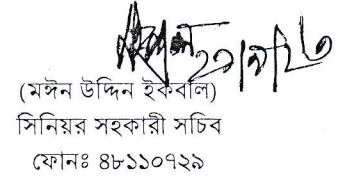 (মঈন উদ্দিন ইকবাল)
সিনিয়র সহকারী সচিব
ফোনঃ ৪৮১১০৭২৯